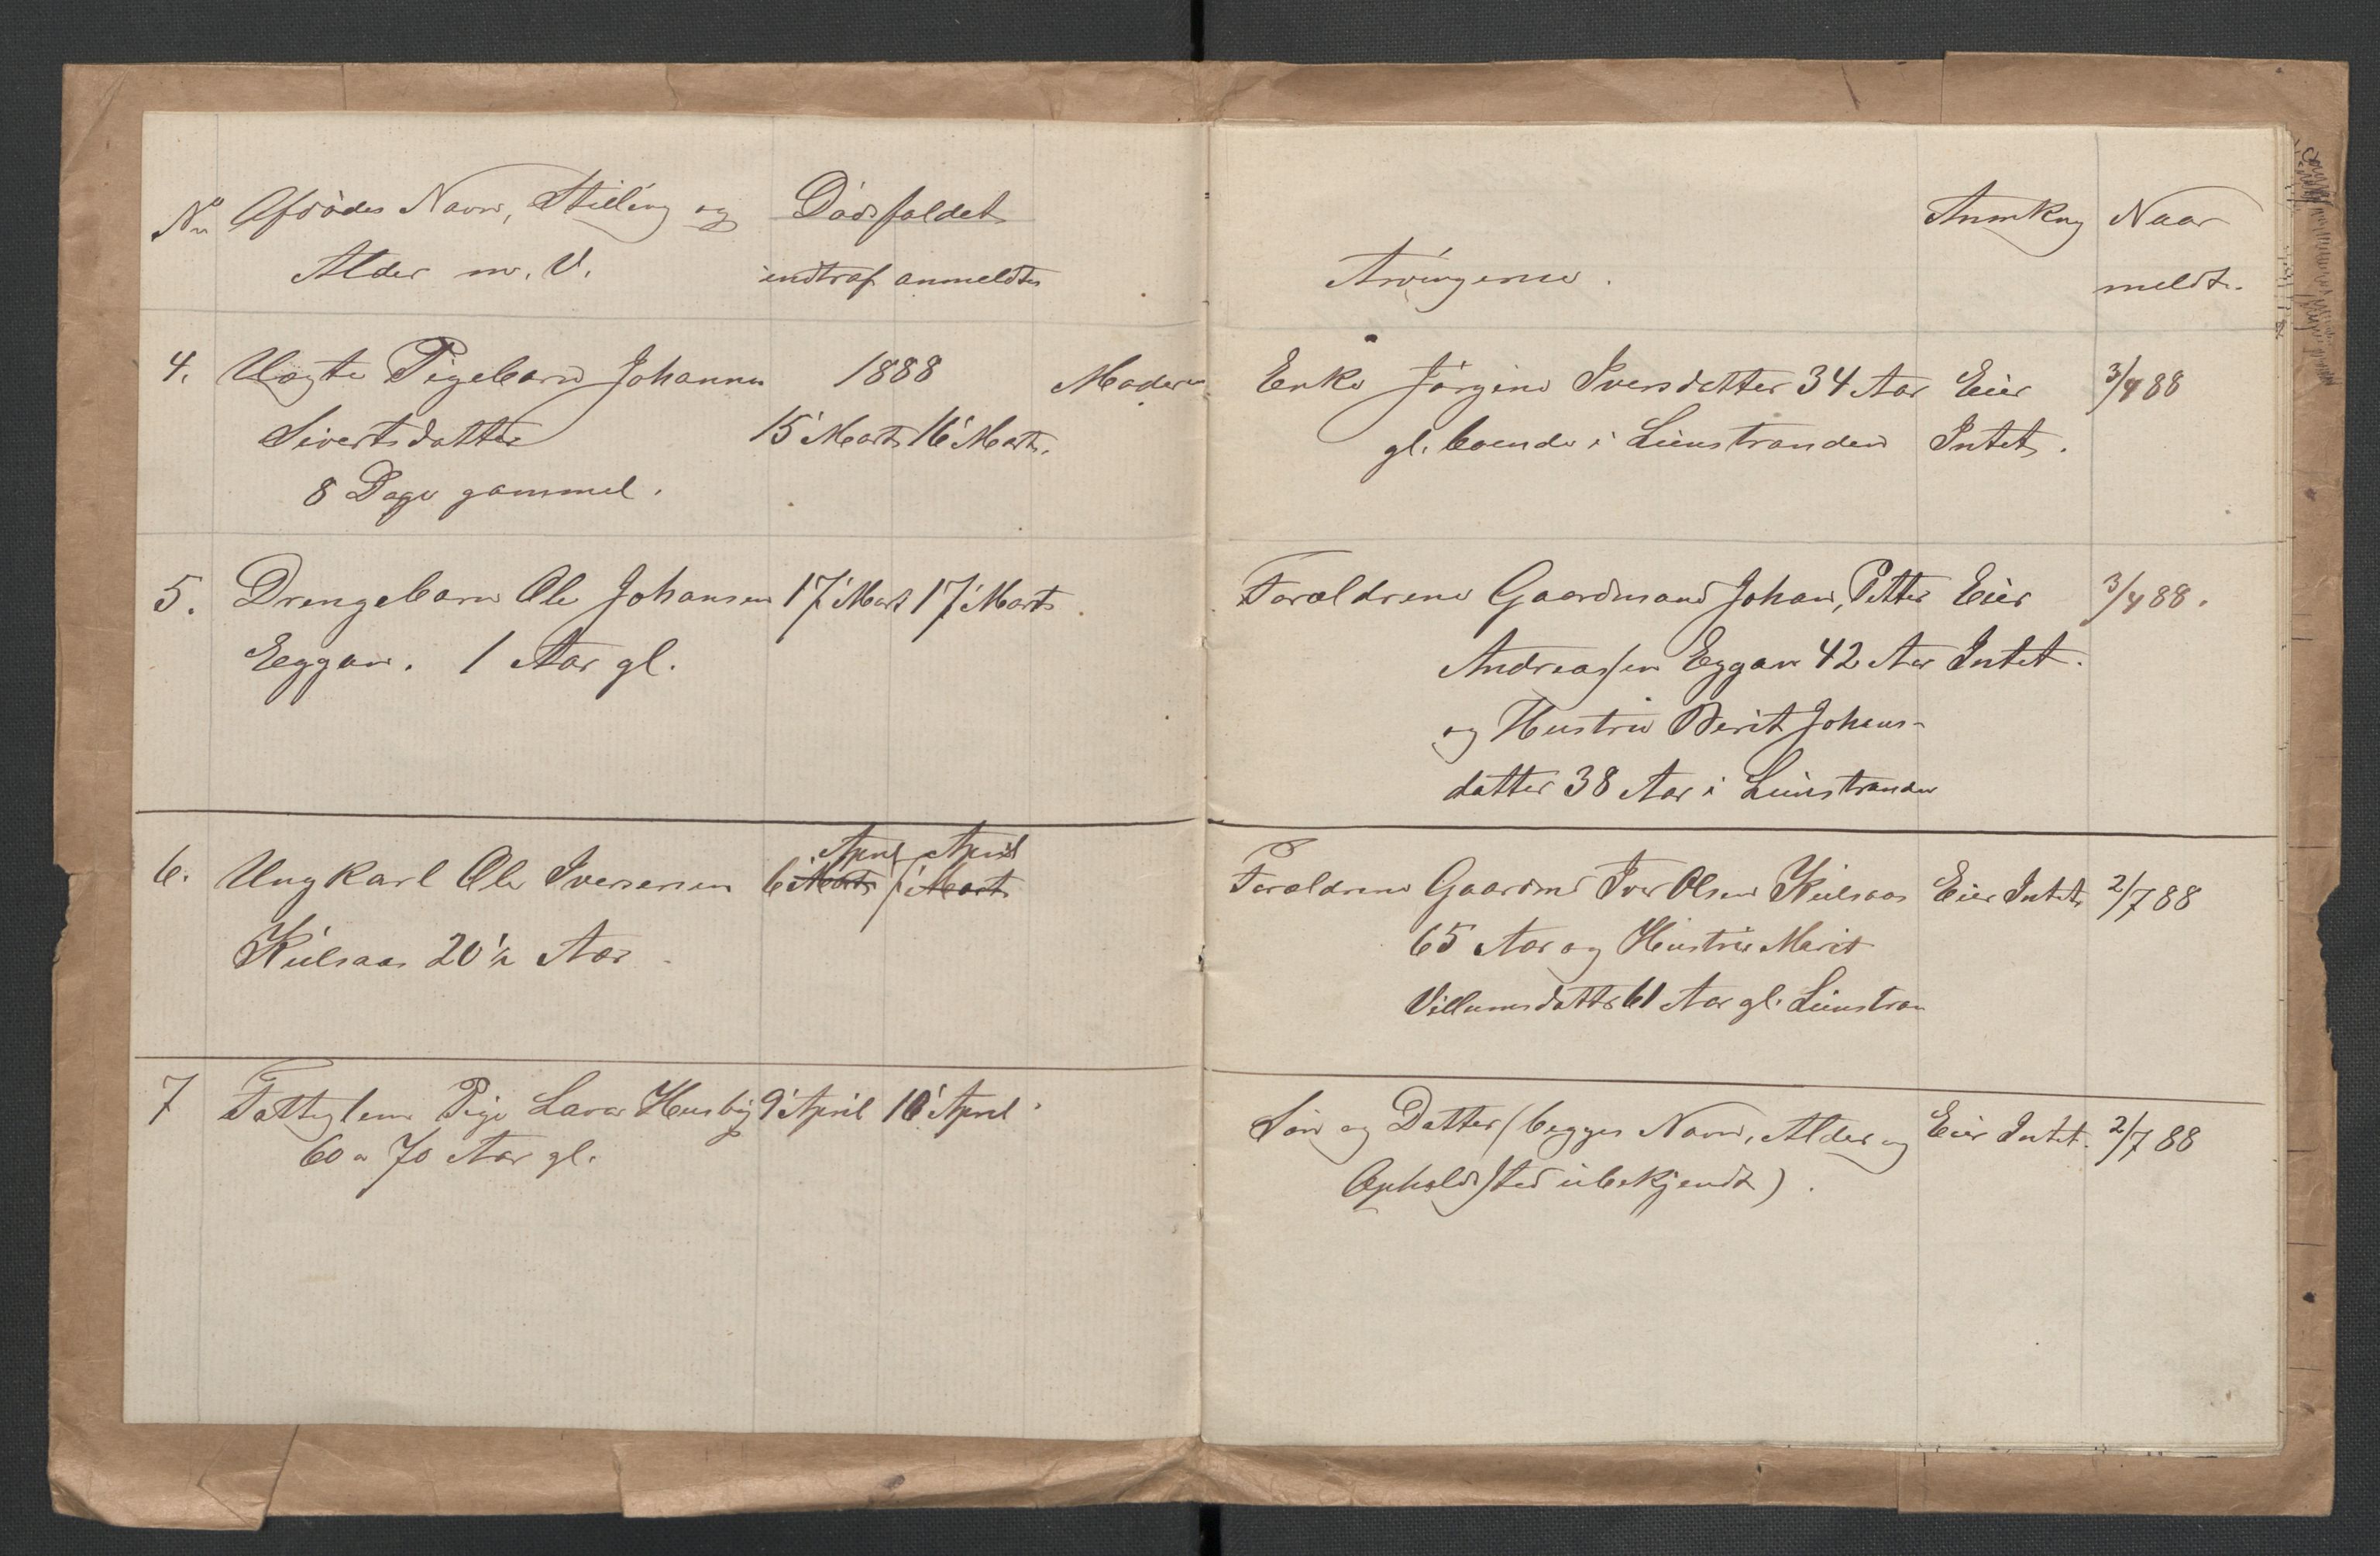 No Afdødes Navn, Stilling og Dødsfaldet Anmkng Naar
Alder m. V. indtraf anmeldtes Arvingerne. meldt.
4. Uægte Pigebarn Johanna 1888 Moderen Enke Jørgine Iversdatter 34 Aar Eier 3/4 88
Sivertsdatter 15' Marts 16' Marts. gl. boende i Leinstranden Intet.
8 Dage gammel.
5. Drengebarn Ole Johansen 17' Marts 17' Marts Forældrene Gaardmand Johan, Petter Eier 3/4 88.
Eggan. 1 Aar gl. Andreassen Eggan 42 Aar Intet.
og Hustru Berit Johans-
datter 38 Aar i Leinstranden
April April
6. Ungkarl Ole Iversen 6' Marts Marts Forældrene Gaardmd Iver Olsen Kulsaas Eier Intet 2/7 88
Kulsaas 20 1/2 Aar 65 Aar og Hustru Marit
Villumsdatter 61 Aar gl. Leinstran
7 Fattiglem Pige Lava Husby 9' April 10' April Søn og Datter (begges Navn, Alder og Eier Intet. 2/7 88
60 a 70 Aar gl. Opholdssted ubekjendt).